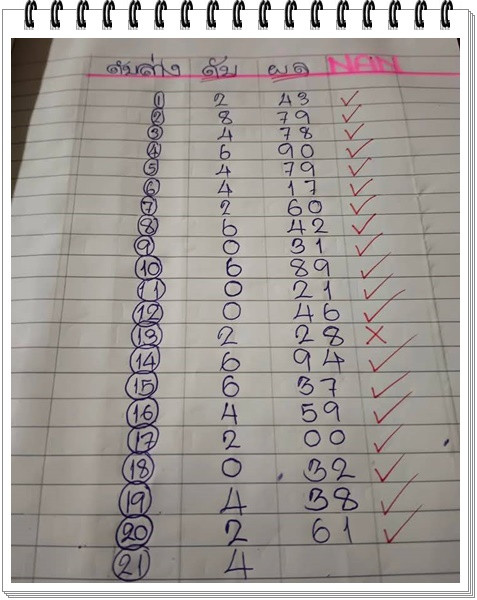 ดับล่าง ดับ ผล NAN
1 2 43 ✓
2 8 79 ✓
3 4 78 ✓
4 6 90 ✓
5 4 79 ✓
6 4 17 ✓
7 2 60 ✓
8 6 42 ✓
9 0 31 ✓
10 6 89 ✓
11 0 21 ✓
12 0 46 ✓
13 2 28 ✗
14 6 94 ✓
15 6 37 ✓
16 4 59 ✓
17 2 00 ✓
18 0 32 ✓
19 4 38 ✓
20 2 61 ✓
21 4